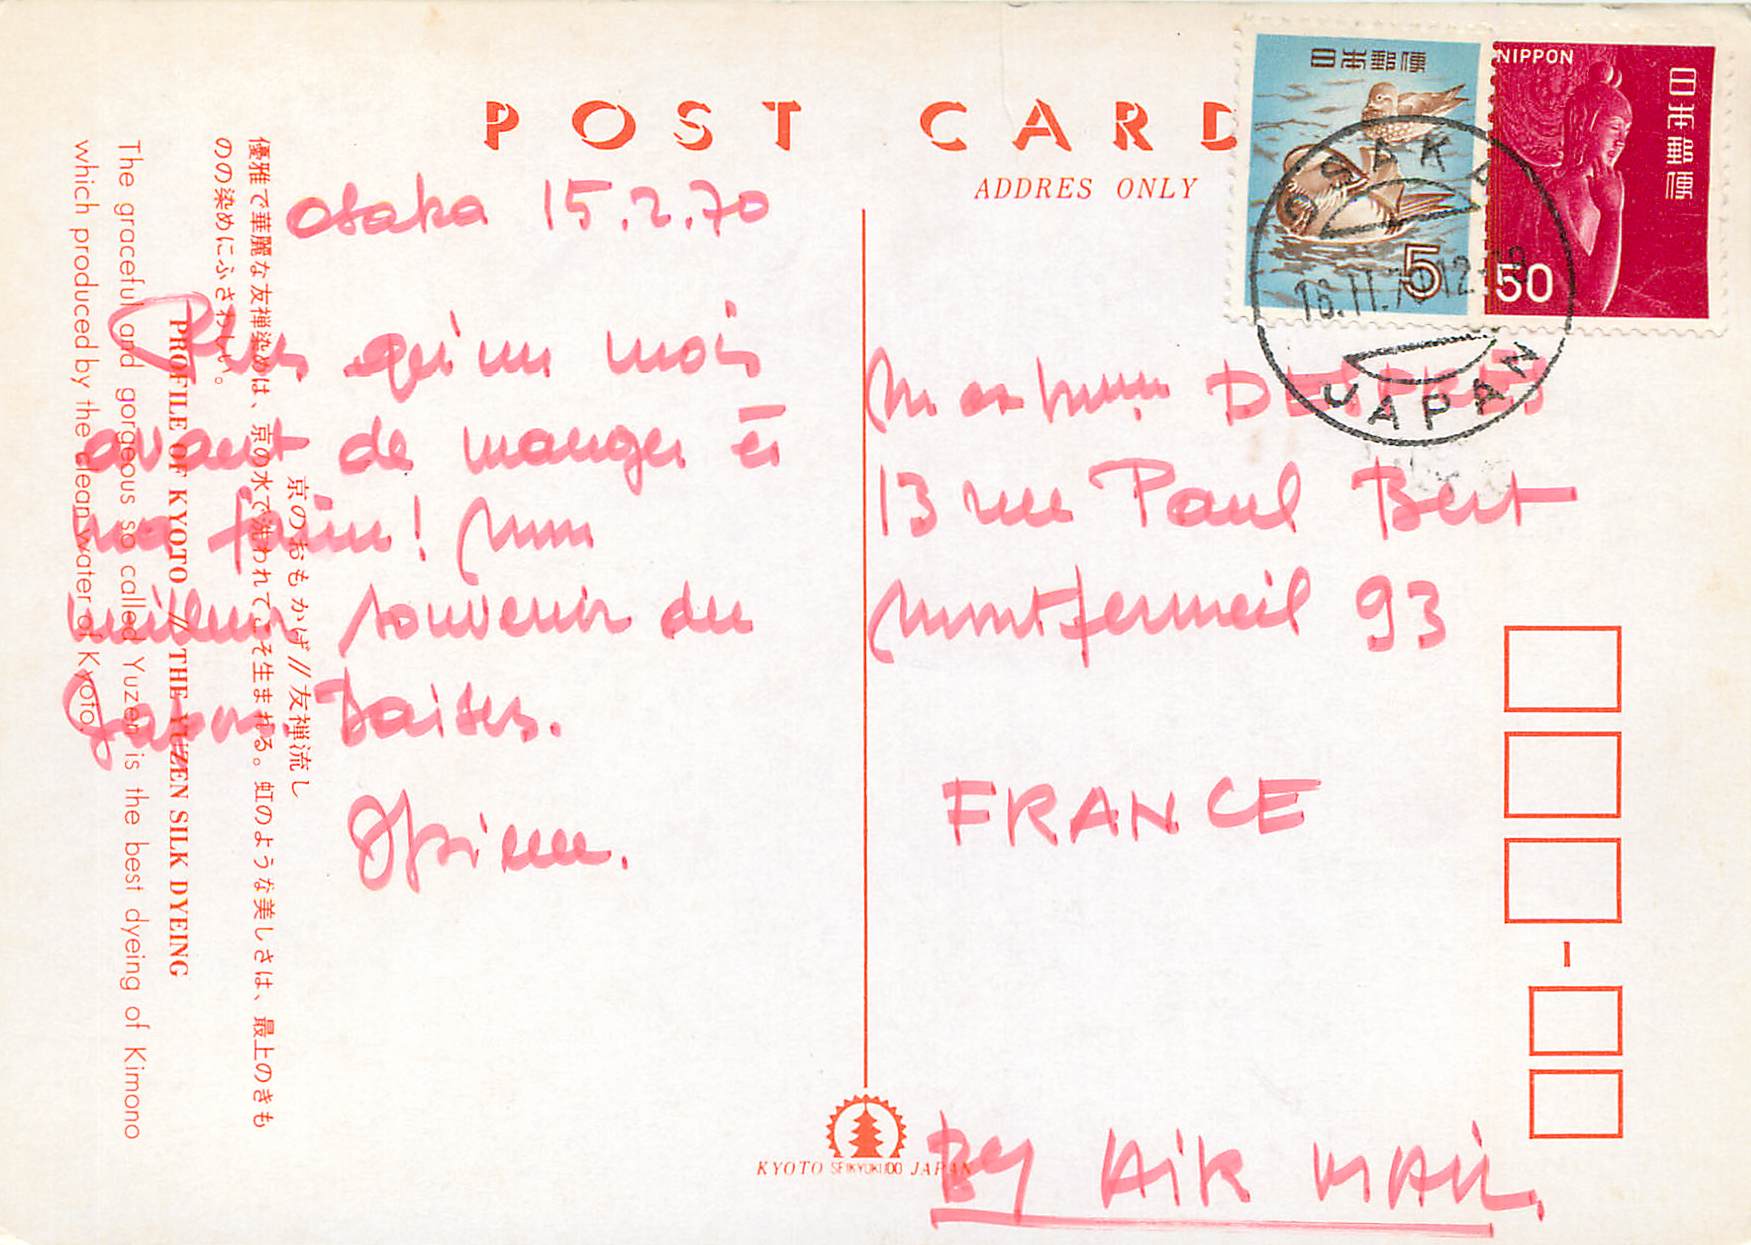 POST CARD
ADDRES ONLY
日本郵便
5
NIPPON
日本郵便
50
OSAKA
16.II.70 12-18
JAPAN
Osaka 15.2.70
Plus qu'un mois
avant de manger à
ma faim! Mon
meilleur souvenir du
Japon. Baisers.
13 rue Paul Bert
Montfermeil 93
FRANCE
BY AIR MAIL
京のおもかげ//友禅流し
優雅で華麗な友禅染めは、京の水で洗われてこそ生まれる。虹のような美しさは、最上のきも
のの染めにふさわしい。
PROFILE OF KYOTO // THE YUZEN SILK DYEING
The graceful and gorgeous so called Yuzen is the best dyeing of Kimono
which produced by the clean water of Kyoto.
KYOTO SEIKYUKUDO JAPAN